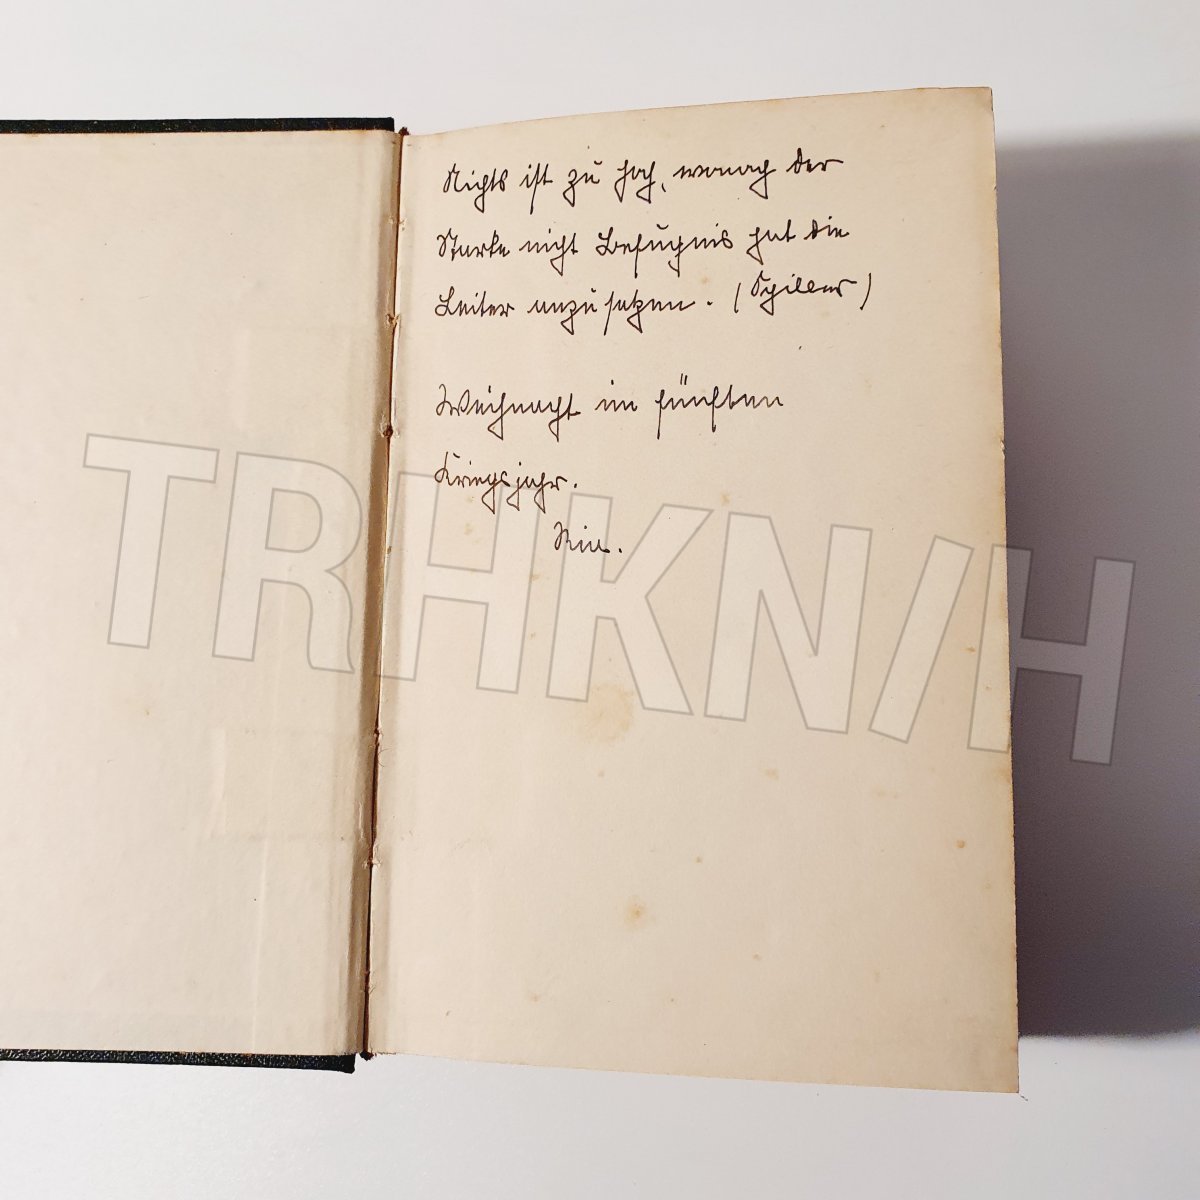 Nichts ist zu hoch, wonach der
Starke nicht Befugnis hat die
Leiter anzusetzen. (Schiller)
Weihnacht im fünften
Kriegsjahr.
TRHKN/H